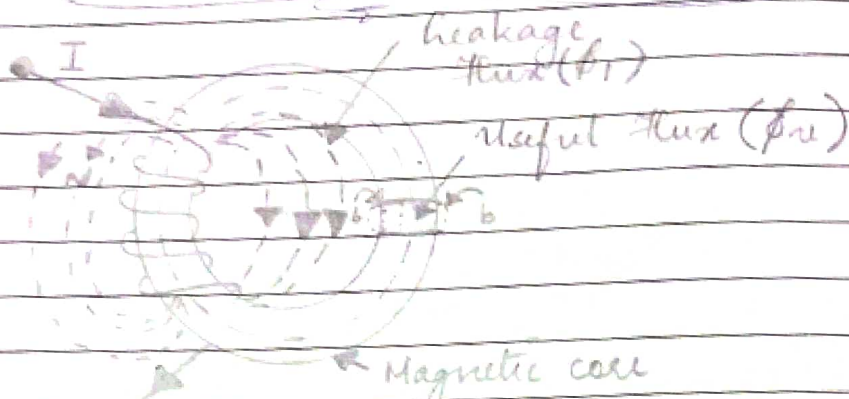 I
Leakage
flux (ϕ1)
Useful flux (ϕu)
N
b
b
Magnetic core